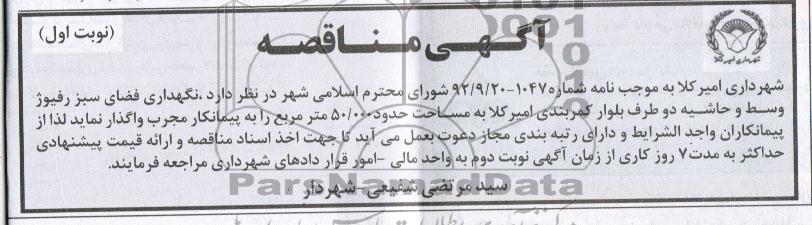 آگهی مناقصه
(نوبت اول)
شهرداری امیرکلا
شهرداری امیرکلا به موجب نامه شماره ۱۰۴۷-۹۲/۹/۲۰ شورای محترم اسلامی شهر در نظر دارد ،نگهداری فضای سبز رفیوژ
وسط و حاشیه دو طرف بلوار کمربندی امیرکلا به مساحت حدود ۵۰/۰۰۰ متر مربع را به پیمانکار مجرب واگذار نماید لذا از
پیمانکاران واجد الشرایط و دارای رتبه بندی مجاز دعوت بعمل می آید تا جهت اخذ اسناد مناقصه و ارائه قیمت پیشنهادی
حداکثر به مدت ۷ روز کاری از زمان آگهی نوبت دوم به واحد مالی -امور قرار دادهای شهرداری مراجعه فرمایند.
سید مرتضی شفیعی-شهردار
ParsNamadData